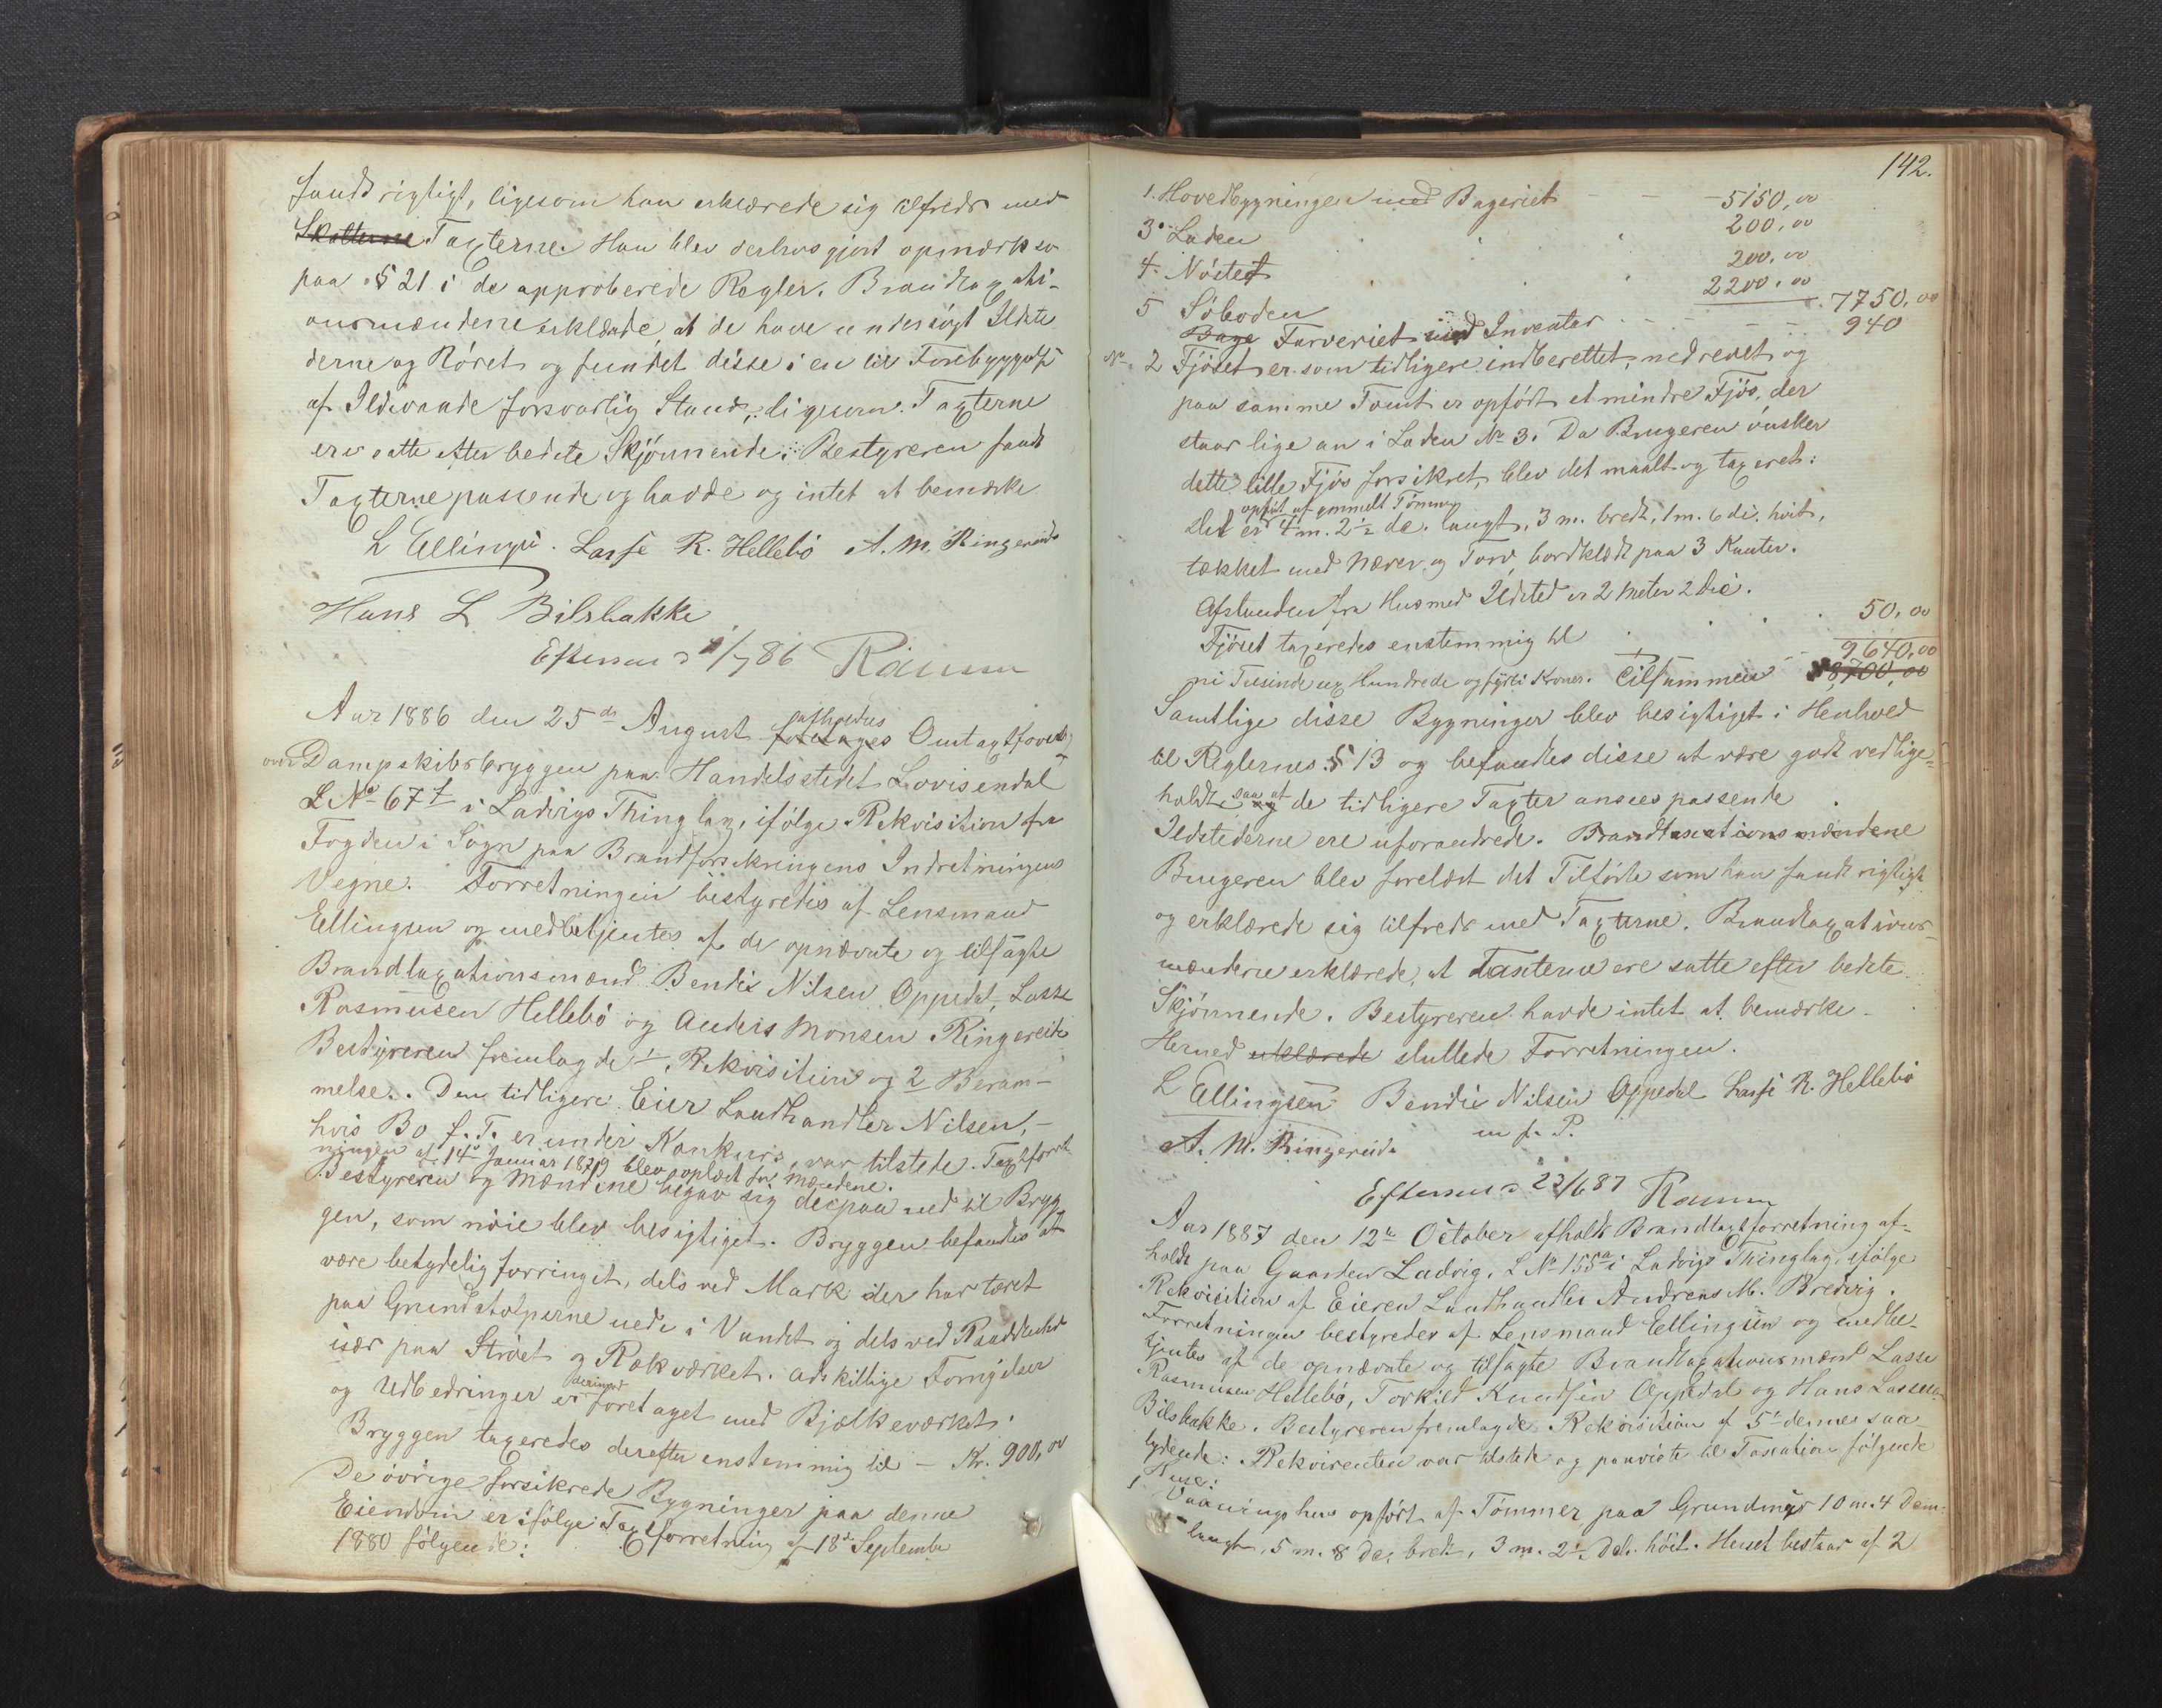 fandt rigtigt, ligesom han erklærede sig tilfreds med
Skatterne Taxterne. Han blev derhos gjort opmærksom
paa § 21 i de approberede Regler. Brandtaxati-
onsmændene erklærede, at de have undersøgt Ildste
derne og Røret og fundet disse i en til Forebyggelse
af Ildsvaade forsvarlig Stand, ligesom Taxterne
ere satte efter bedste Skjønnende. Bestyreren fandt
Taxterne passende og havde og intet at bemærke
L Ellingsen. Lasse R. Hellebø A. M. Ringereide
Hans L Bilsbakke
Efterseet /7 86
Aar 1886 den 25de August foretages afholdtes Omtaxtforretn
over Dampskibsbryggen paa Handelsstedet Lovisendal
L No 67 f i Ladvigs Thinglag, ifølge Rekvisition fra
Fogden i Sogn paa Brandforsikringens Indretningens
Vegne. Forretningen bestyredes af Lensmand
Ellingsen og medbetjentes af de opnævnte og tilsagte
Brandtaxationsmænd Bendix Nilsen Oppedal, Lasse
Rasmusen Hellebø og Anders Monsen Ringereide
Bestyreren fremlagde 1 Rekvisition og 2 Beram-
melse. Den tidligere Eier Landhandler Nilsen, -
hvis Bo f. T. er under Konkurs, var tilstede. Taxtforret
ningen af 14de Januar 1879 blev oplæst for Mændene.
Bestyreren og Mændene begav sig derpaa ned til Bryg
gen, som nøie blev besigtiget. Bryggen befandtes at
være betydelig forringet, dels ved Mark der har tæret
paa Grundstolperne nede i Vandet og dels ved Raaddenhed
især paa Strøet og Rækværket. Adskillige Fornyelser
og Udbedringer er derimod foretaget med Bjælkeværket.
Bryggen taxeredes derefter enstemmig til - Kr. 900,00
De øvrige forsikrede Bygninger paa denne
Eiendom er ifølge Taxtforretning af 18de September
1880 følgende:
142.
1. Hovedbygningen med Bageriet - - 5150,00
3. Laden 200,00
4. Nøstet 200,00
5 Søboden 2200,00 7750,00
Bage Farveriet med Inventar 940
No 2 Fjøset er som tidligere indberettet, nedrevet og
paa samme Tomt er opført et mindre Fjøs, der
staar lige an i Laden No 3. Da Brugeren ønsker
dette lille Fjøs forsikret, blev det maalt og taxeret:
opført af gammelt Tømmer
Det er 4 m. 2½ de. langt, 3 m. bredt, 1 m. 6 de. høit,
tækket med Næver og Torv, bordklædt paa 3 Kanter.
Afstanden fra Hus med Ildsted er 2 Meter 2 Dec.
Fjøset taxeredes enstemmig til 50,00
9640,00
ni Tusinde sex Hundrede og fyrti Kroner. Tilsammen 8,700,00
Samtlige disse Bygninger blev besigtiget i Henhold
til Reglernes § 13 og befandtes disse at være godt vedlige-
holdt, saa at og de tidligere Taxter ansees passende
Ildstederne ere uforandrede. Brandtaxationsmændene
Brugeren blev forelæst det Tilførte som han fandt rigtigt
og erklærede sig tilfreds med Taxterne. Brandtaxations-
mændene erklærede, at Taxterne ere satte efter bedste
Skjønnende. Bestyreren havde intet at bemærke.
Hermed erklærede sluttede Forretningen.
L Ellingsen Bendix Nilsen Oppedal Lasse R. Hellebø
m. p. P.
A. M. Ringereide
Efterseet 22/6 87
Aar 1887 den 12te October afholdt Brandtaxtforretning af-
holdt paa Gaarden Ladvig, L No 155a i Ladvigs Thinglag, ifølge
Rekvisition af Eieren Landhandler Andreas M. Bredvig.
Forretningen bestyredes af Lensmand Ellingsen og medbe-
tjentes af de opnævnte og tilsagte Brandtaxationsmænd Lasse
Rasmusen Hellebø, Torkild Knudsen Oppedal og Hans Lassesen
Bilsbakke. Bestyreren fremlagde Rekvisition af 5te dennes saa-
lydende: Rekvirenten var tilstede og paaviste til Taxation følgende
Huse:
1 Vaaningshus opført af Tømmer paa Grundmur 10 m. 4 Dem.
langt, 5 m. 8 De. bredt, 3 m. 2½ Dels. høit. Huset bestaar af 2